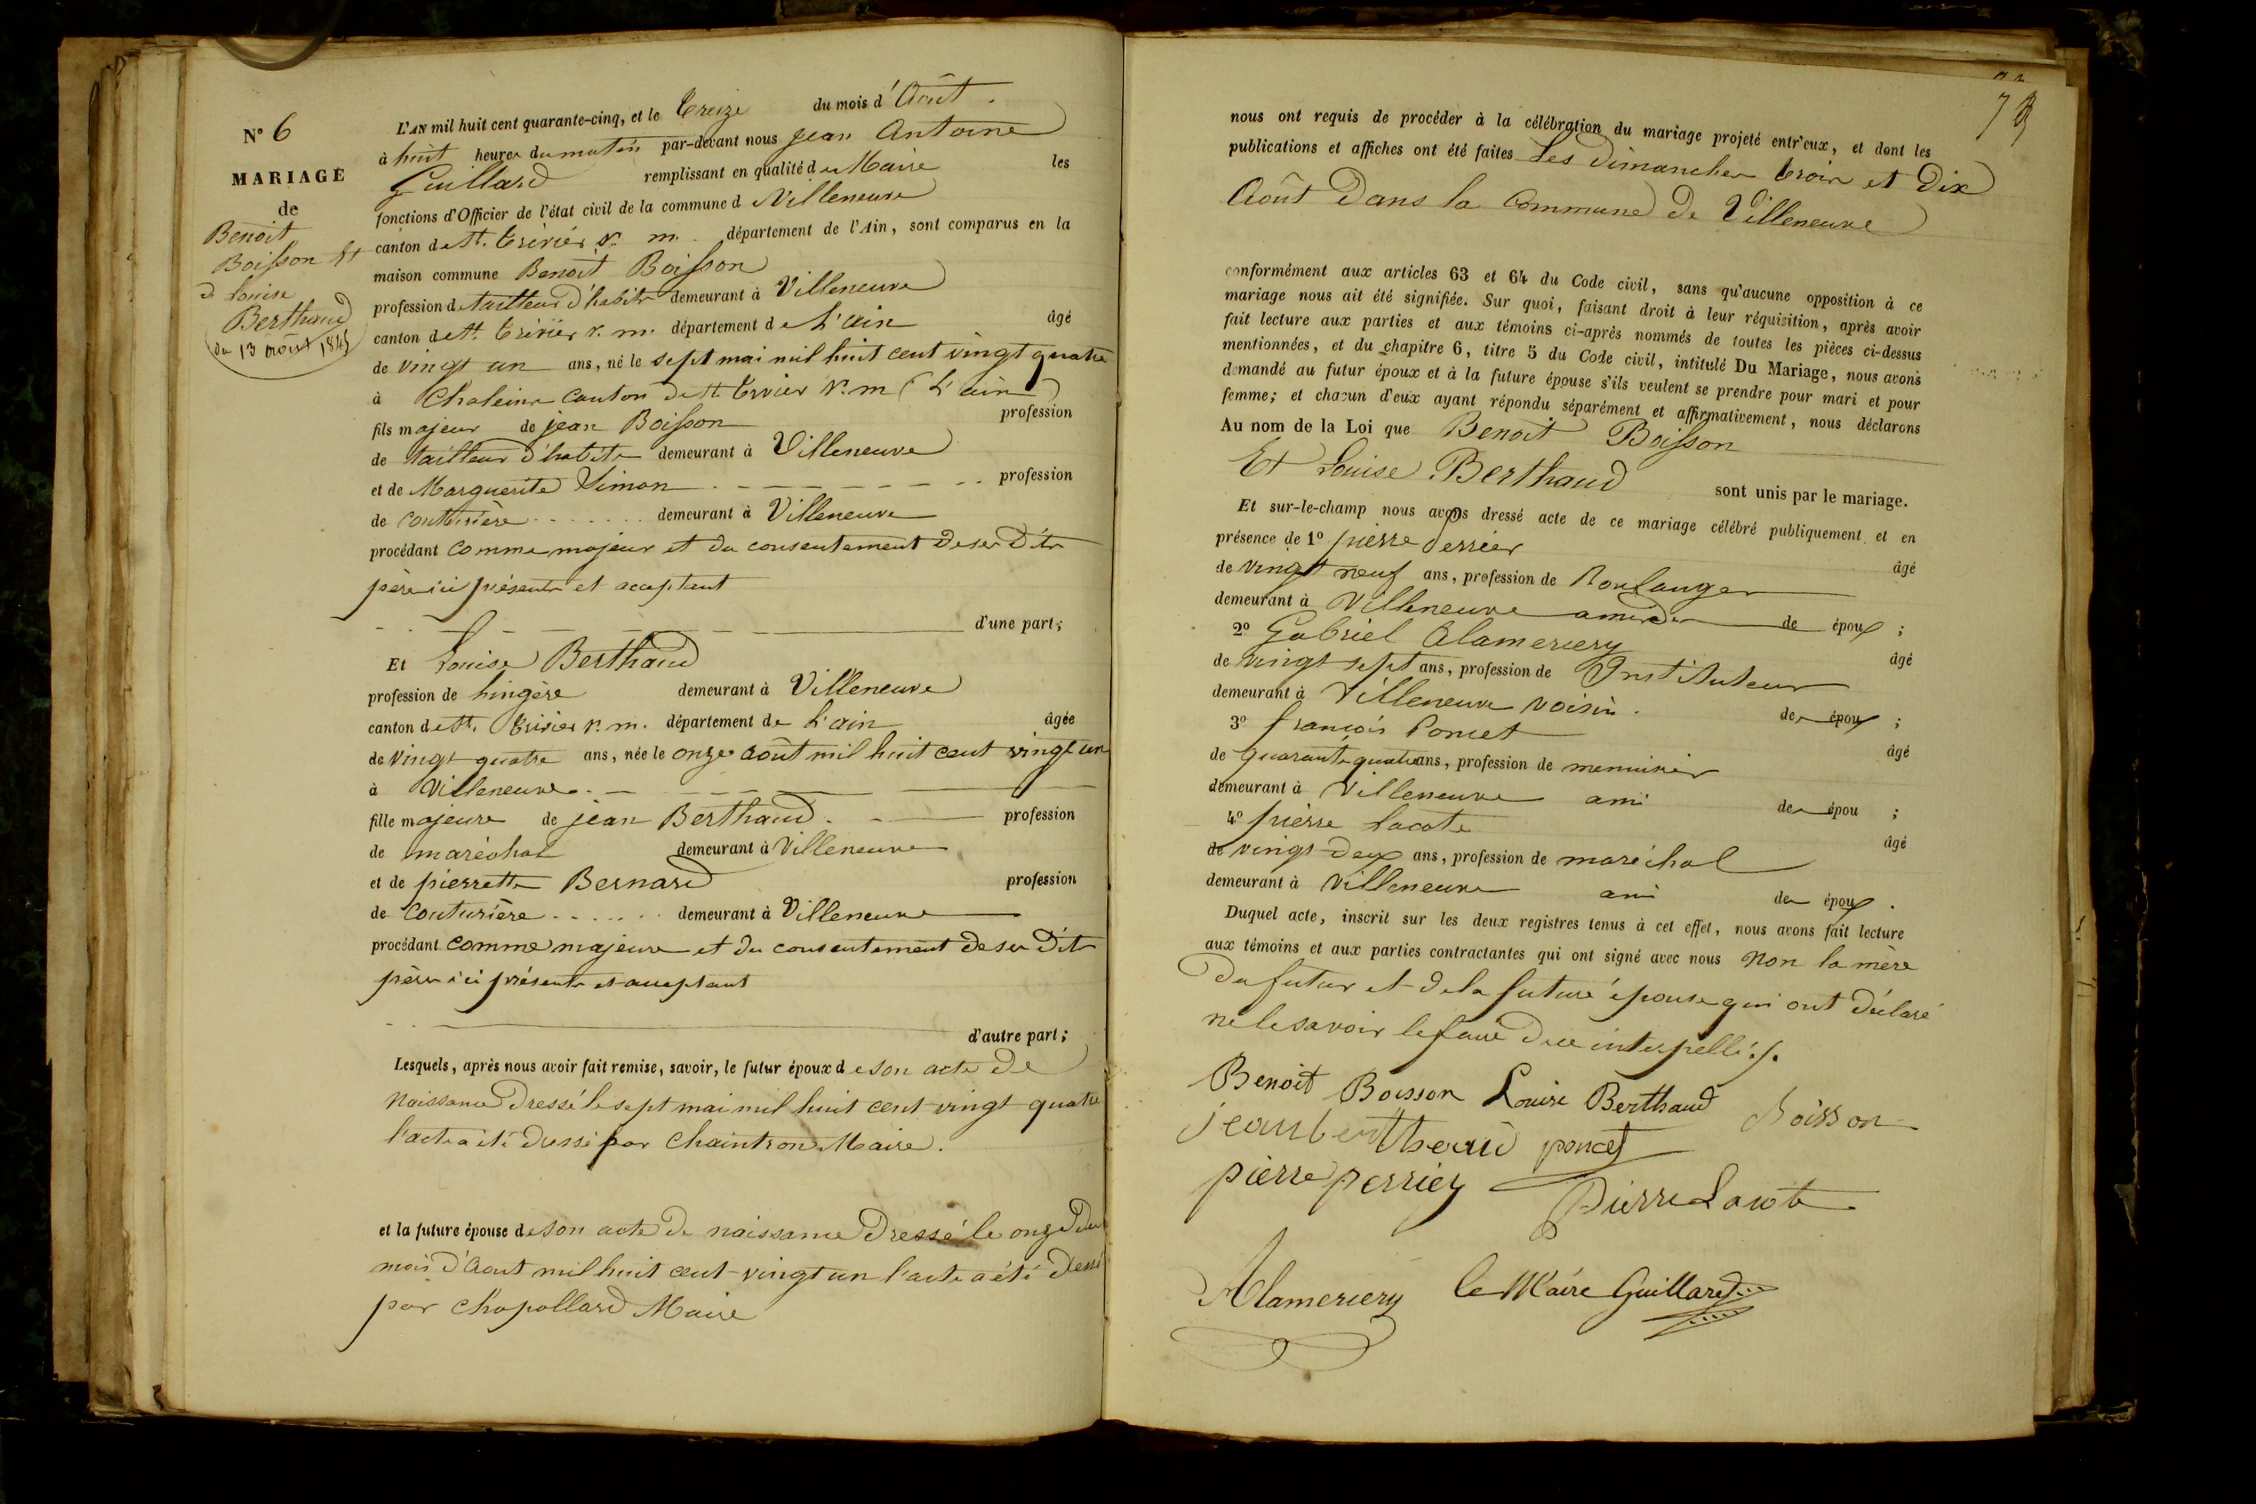 N° 6
MARIAGE
de
Benoit
Boisson Et
d Louise
Berthaud
du 13 Aout 1845
L'AN mil huit cent quarante-cinq, et le treize du mois d'Août
à huit heures du matin par-devant nous jean Antoine
Guillard remplissant en qualité de Maire les
fonctions d'Officier de l'état civil de la commune d Villeneuve
canton de St. trivier s. m. département de l'Ain, sont comparus en la
maison commune Benoit Boisson
profession de tailleur d'habits demeurant à Villeneuve
canton de St. trivier s. m. département de L'ain âgé
de vingt un ans, né le sept mai mil huit cent vingt quatre
à Chaleins canton de St trivier s. m (L'ain)
fils majeur de jean Boisson profession
de tailleur d'habits demeurant à Villeneuve
et de Marguerite Simon profession
de couturière demeurant à Villeneuve
procédant comme majeur et du consentement de ses dits
père ici présents et acceptant
d'une part;
Et Louise Berthaud
profession de lingère demeurant à Villeneuve
canton de St. trivier s. m. département de L'ain âgée
de vingt quatre ans, née le onze août mil huit cent vingt un
à Villeneuve
fille majeure de jean Berthaud profession
de maréchal demeurant à Villeneuve
et de pierrette Bernard profession
de couturière demeurant à Villeneuve
procédant comme majeure et du consentement de ses dits
père ici présents et acceptant
d'autre part;
Lesquels, après nous avoir fait remise, savoir, le futur époux de son acte de
naissance dressé le sept mai mil huit cent vingt quatre
l'acte a été dressé par Chaintron Maire.
et la future épouse de son acte de naissance dressé le onze du
mois d'Aout mil huit cent vingt un l'acte a été dressé
par Chapollard Maire
nous ont requis de procéder à la célébration du mariage projeté entr'eux, et dont les
publications et affiches ont été faites Les dimanches trois et dix
Août dans la commune de Villeneuve
conformément aux articles 63 et 64 du Code civil, sans qu'aucune opposition à ce
mariage nous ait été signifiée. Sur quoi, faisant droit à leur réquisition, après avoir
fait lecture aux parties et aux témoins ci-après nommés de toutes les pièces ci-dessus
mentionnées, et du chapitre 6, titre 5 du Code civil, intitulé Du Mariage, nous avons
demandé au futur époux et à la future épouse s'ils veulent se prendre pour mari et pour
femme; et chacun d'eux ayant répondu séparément et affirmativement, nous déclarons
Au nom de la Loi que Benoit Boisson
Et Louise Berthaud sont unis par le mariage.
Et sur-le-champ nous avons dressé acte de ce mariage célébré publiquement et en
présence de 1° pierre perrier
âgé
de vingt neuf ans, profession de Boulanger
demeurant à Villeneuve ami des de époux ;
2° Gabriel Alamercery
âgé
de vingt sept ans, profession de Instituteur
demeurant à Villeneuve voisin. des époux ;
3° françois Poncet
âgé
de quarante quatre ans, profession de menuisier
demeurant à Villeneuve ami des épou ;
4° pierre Lacote
âgé
de vingt deux ans, profession de maréchal
demeurant à Villeneuve ami des époux .
Duquel acte, inscrit sur les deux registres tenus à cet effet, nous avons fait lecture
aux témoins et aux parties contractantes qui ont signé avec nous Non la mère
du futur et de la future épouse qui ont déclaré
ne le savoir le faire de ce interpellé./.
Benoit Boisson Louise Berthaud Boisson
jean berthaud poncet
pierre perrier Pierre Lacote
Alamercery Le Maire Guillard